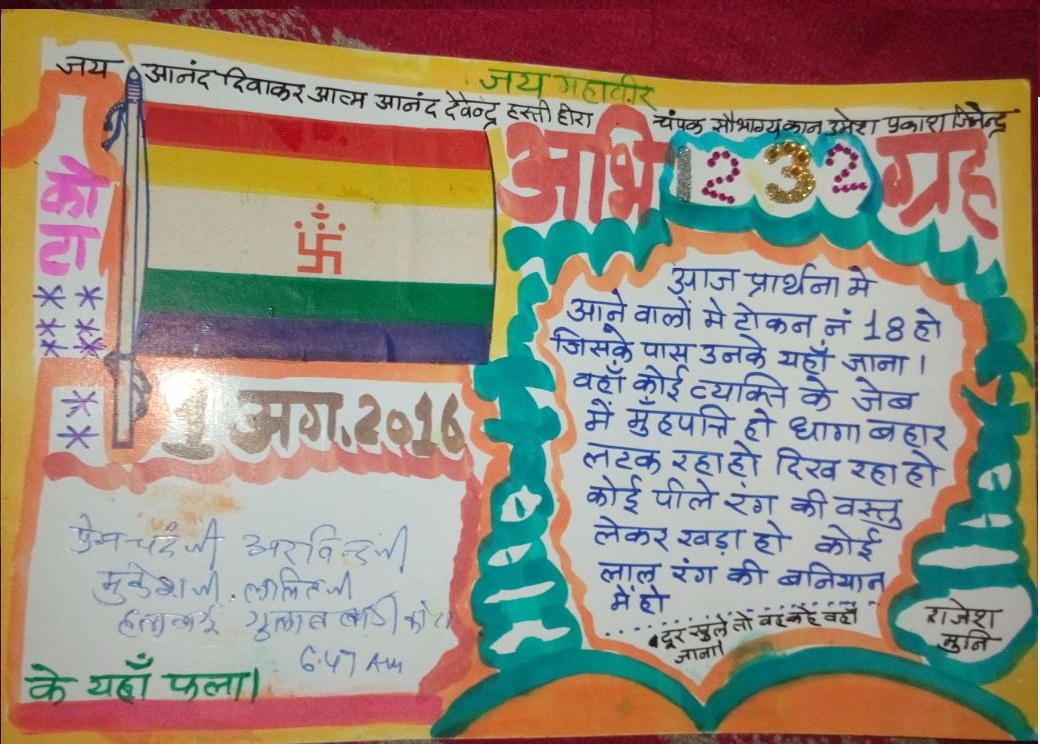 जय महावीर
जय आनंद दिवाकर आत्म आनंद देवेन्द्र हस्ती हीरा चंपक सौभाग्य कान उमेश प्रकाश जिनेन्द्र
कोटा
1 अग. 2016
प्रेमचंदजी अरविन्दजी
मुकेशजी. ललितजी
गुलाब बाडी कोटा
6.47 Am
के यहाँ फला।
अभि 1232 ग्रह
आज प्रार्थना मे
आने वालों मे टोकन नं 18 हो
जिसके पास उनके यहाँ जाना।
वहाँ कोई व्यक्ति के जेब
में मुँहपत्ति हो धागा बहार
लटक रहा हो दिख रहा हो
कोई पीले रंग की वस्तु
लेकर खड़ा हो कोई
लाल रंग की बनियान
में हो
दूर खुले तो वह कहे वहाँ
जाना।
राजेश
मुनि